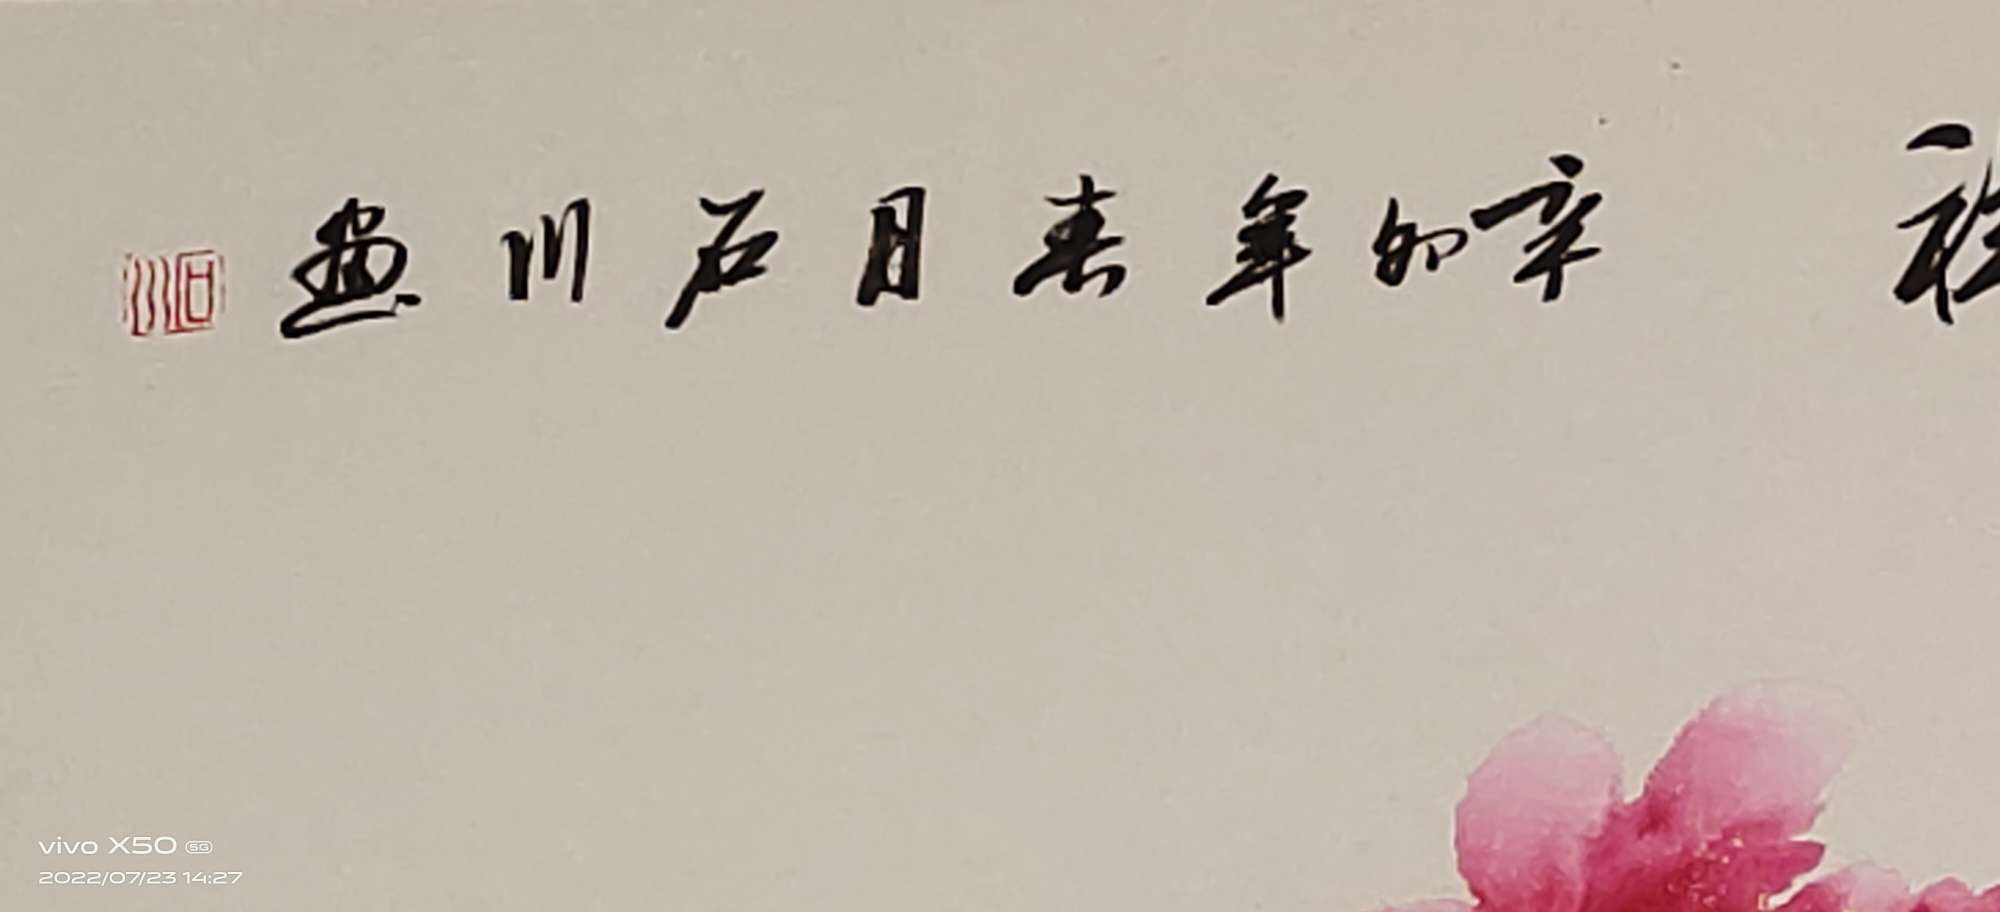 辛卯年春月石川画
石川
vivo X50 5G
2022/07/23 14:27